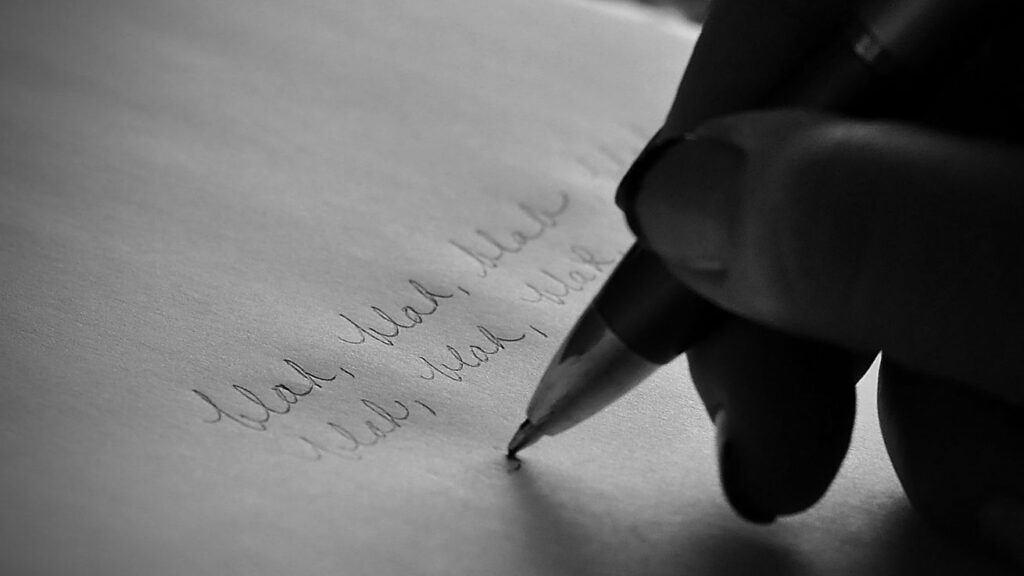 blah, blah, blah
blah, blah, blah